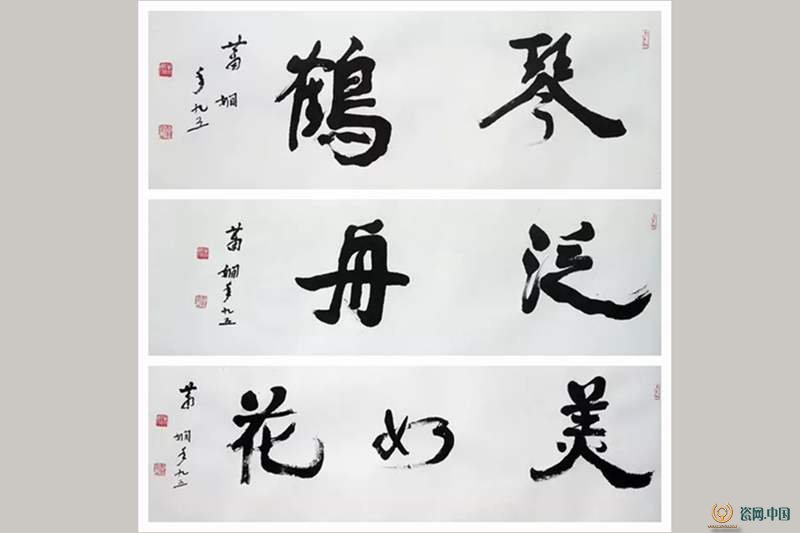 琴鹤
萧娴年九五
泛舟
萧娴年九五
美如花
萧娴年九五
瓷网.中国